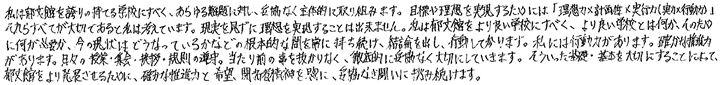 私は郁文館を誇りの持てる学校にすべく、あらゆる難題に対し、妥協なく主体的に取り組みます。目標や理想を実現するためには「理想力×計画性×実行力(実力行動力)」
これらすべてが大切であると私は考えています。現実を見ずに理想を実現することは出来ません。私は郁文館をより良い学校にすべく、より良い学校とは何か、そのため
に何が必要か、今の現状はどうなっているかなどの根本的な問を常に持ち続け、結論を出し、行動してかります。私には行動力があります。確かな推進力
があります。日々の授業・集会・挨拶・規則の遵守。当たり前の事を抜かりなく、徹底的に妥協なく大切にしていきます。そういった基礎・基本を大切にすることによって、
郁文館をより発展させるために、確かな推進力と希望、開拓者精神を胸に、妥協なき闘いに挑み続けます。